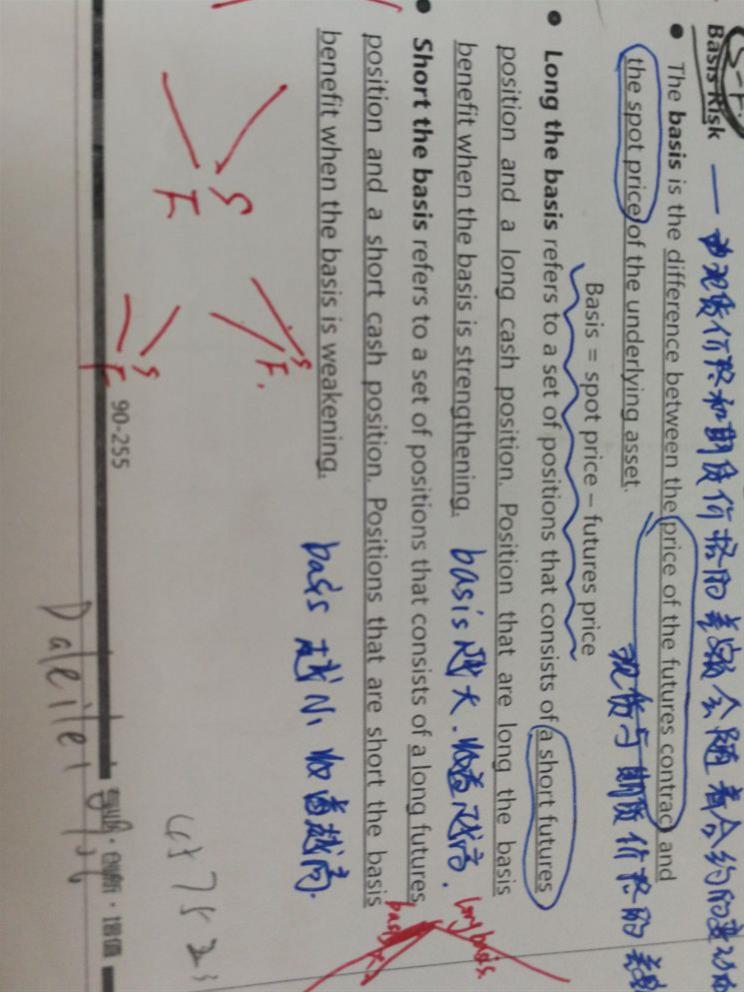 S-F
Basis Risk — 由现货价格和期货价格的差额会随着合约的变动而
• The basis is the difference between the price of the futures contract and
the spot price of the underlying asset.
现货与期货价格的差额
Basis = spot price – futures price
• Long the basis refers to a set of positions that consists of a short futures
position and a long cash position. Position that are long the basis
benefit when the basis is strengthening.
basis越大.收益越高.
long basis
• Short the basis refers to a set of positions that consists of a long futures
position and a short cash position. Positions that are short the basis
benefit when the basis is weakening.
basis 越小 收益越高.
S
F
S
F
S
F
90-255
专业·创新·增值